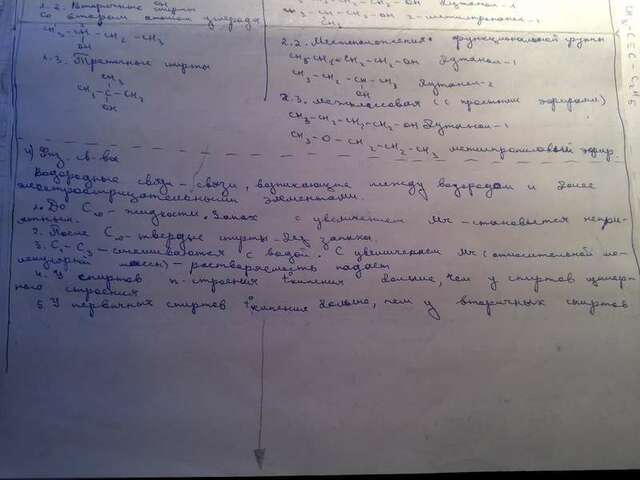 1.2. Вторичные спирты
со вторым атомом углерода
CH3-CH-CH2-CH3
OH
1.3. Третичные спирты
CH3
CH3-C-CH3
OH
2.2. Местоположения функциональной группы
CH3-CH2-CH2-CH2-OH бутанол-1
CH3-CH2-CH-CH3 бутанол-2
OH
2.3. Межклассовая (с простыми эфирами)
CH3-CH2-CH2-CH2-OH бутанол-1
CH3-O-CH2-CH2-CH3 метилпропиловый эфир.
4) Физ. св-ва
Водородные связи - связи, возникающие между водородом и более
электроотрицательными элементами.
1. До C10 - жидкости. Запах с увеличением Mr - становится непри-
ятным.
2. После C10 - твердые спирты без запаха.
3. C1-C3 - смешиваются с водой. С увеличением Mr (относительной мо-
лекулярной массы) - растворяемость падает
4. У спиртов n-строения t° кипения больше, чем у спиртов изомер-
ного строения
5. У первичных спиртов t° кипение больше, чем у вторичных спиртов